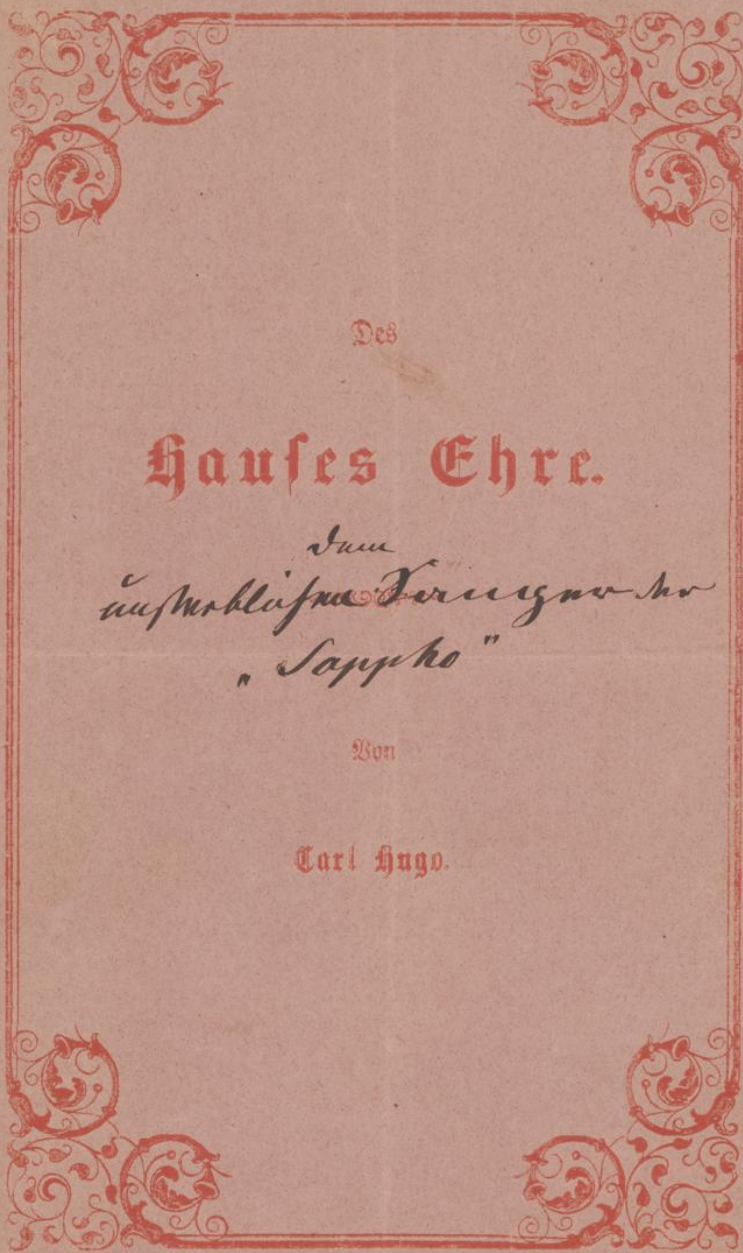 Des
Hauſes Ehre.
Dem
unsterblichen Sänger der
„Sappho"
Von
Carl Hugo.